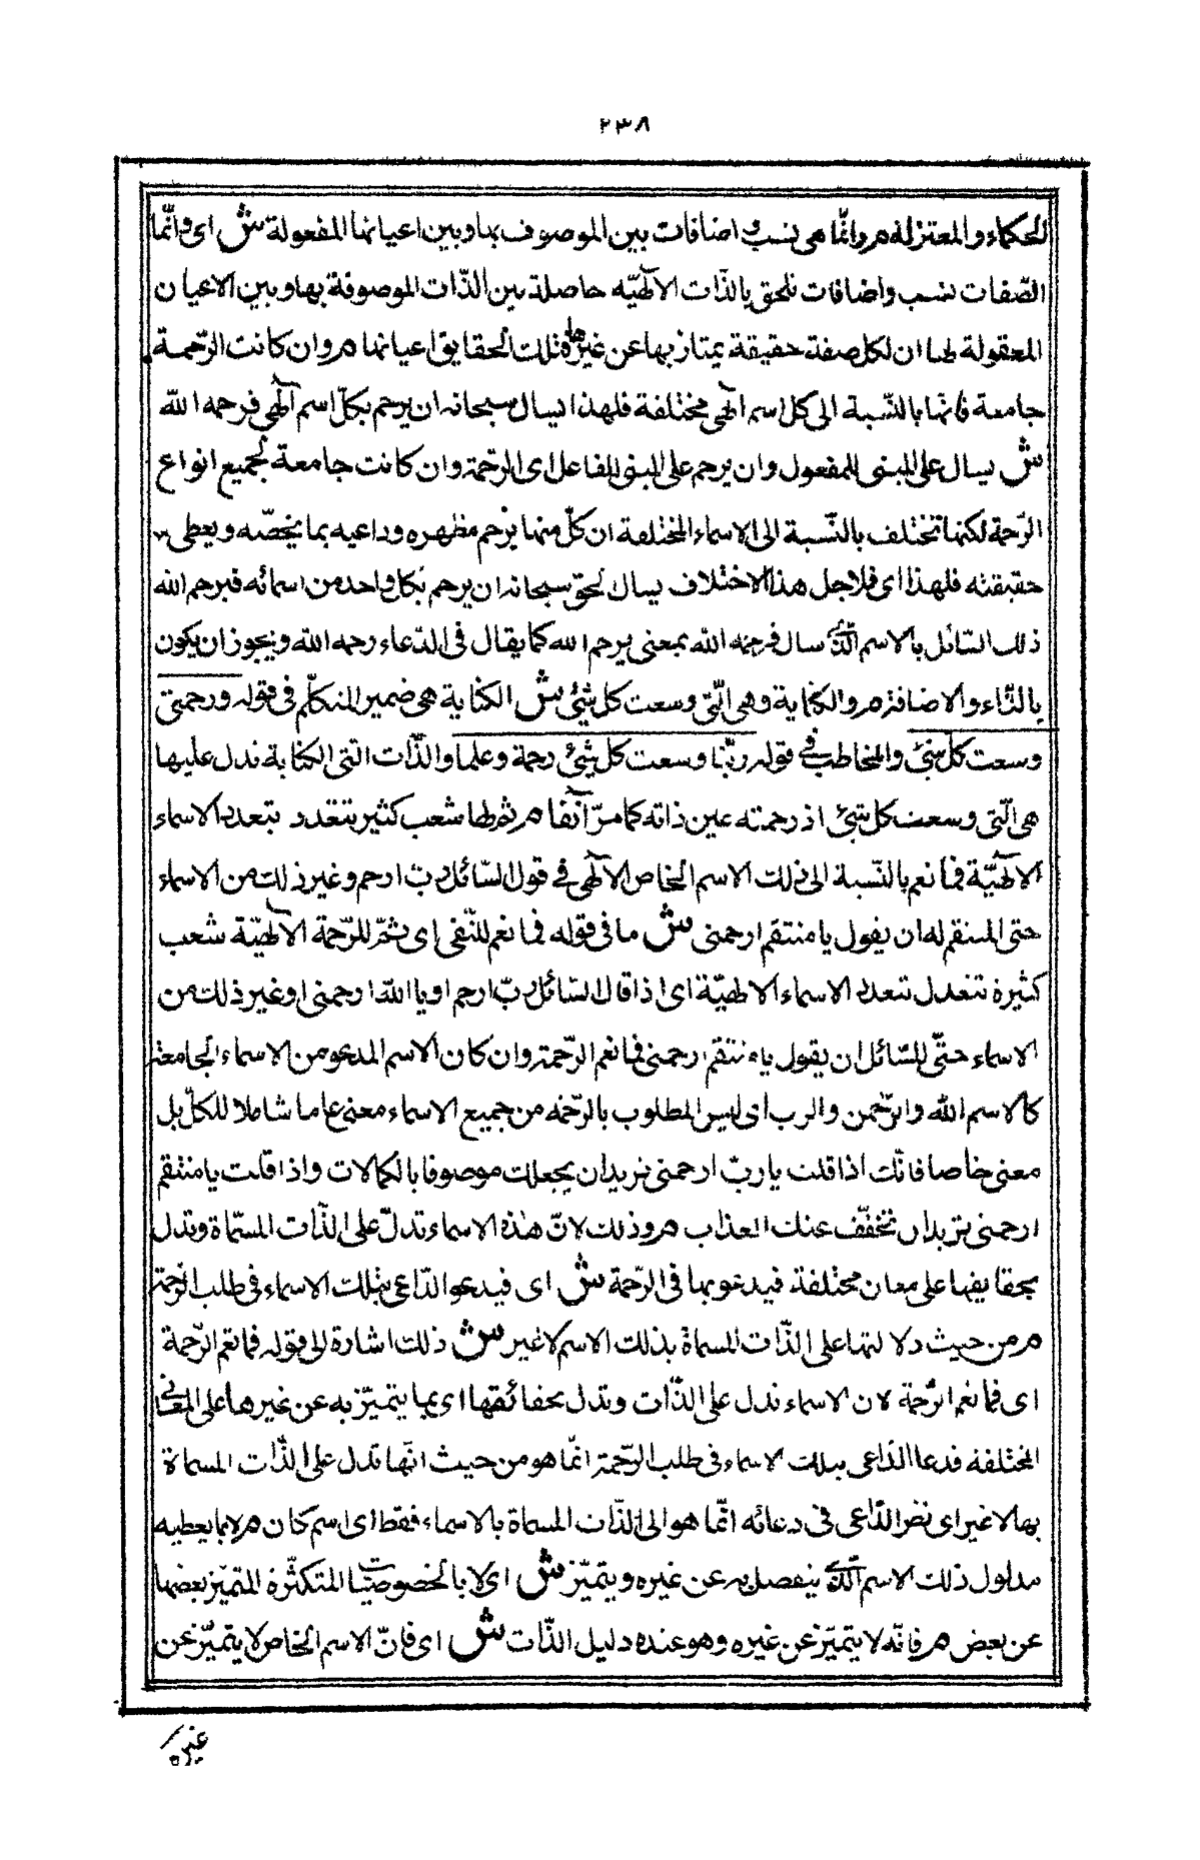 ٢٣٨
الحكماء والمعتزلة م وانّما هى نسب و اضافات بين الموصوف بها وبين اعيانها المفعولة ش اى وانّما
الصّفات نسب واضافات تلحق بالذّات الآلهيّه حاصلة بين الذّات الموصوفة بها وبين الاعيان
المعقولة لها ان لكل صفة حقيقة يمتاز بها عن غيرها فتلك الحقايق اعيانها م وان كانت الرّحمة
جامعة فانها بالنّسبة الى كل اسم آلهى مختلفة فلهذا يسال سبحانه ان يرحم بكلّ اسم آلهى فرحمه الله
ش يسال على المبنى للمفعول وان يرحم على المبنى للفاعل اى الرّحمة وان كانت جامعة لجميع انواع
الرّحمة لكنها تختلف بالنّسبة الى الاسماء المختلفة ان كلّ منها يرحم مظهره وداعيه بما يخصّه ويعطى
حقيقته فلهذا اى فلاجل هذا الاختلاف يسال الحق سبحانه ان يرحم بكل واحد من اسمائه فيرحم الله
ذلك السّائل بالاسم الّذى سال فرحمه الله بمعنى يرحم الله كما يقال فى الدّعاء رحمه الله ويجوز ان يكون
بالتّاء والاضافة م والكناية وهى الّتى وسعت كل شئ ش الكناية هى ضمير المتكلّم فى قوله ورحمتى
وسعت كل شئ والمخاطب فى قوله ربّنا وسعت كل شئ رحمة وعلما والذّات التى الكناية تدل عليها
هى الّتى وسعت كل شئ اذ رحمته عين ذاته كما مرّ آنفا م ثم لها شعب كثير تتعدد بتعدد الاسماء
الآلهيّة فما نعم بالنّسبة الى ذلك الاسم الخاص الآلهى فى قول السّائل ربّ ارحم وغير ذلك من الاسماء
حتى المنتقم له ان يقول يا منتقم ارحمنى ش ما فى قوله فما نعم للنّفى اى ثمّ للرّحمة الآلهيّة شعب
كثيرة تتعدل بتعدد الاسماء الالهيّة اى اذا قال السّائل ربّ ارحم او يا اللّه ارحمنى او غير ذلك من
الاسماء حتّى للسّائل ان يقول يا منتقم ارحمنى فما نعم الرّحمة وان كان الاسم المدعو من الاسماء الجامعة
كالاسم الله والرّحمن والرب اى ليس المطلوب بالرّحمة من جميع الاسماء معنى عاما شاملا للكلّ بل
معنى خاصا فانّك اذا قلت يا ربّ ارحمنى تريد ان يجعلك موصوفا بالكمالات واذا قلت يا منتقم
ارحمنى تريد ان تخفّف عنك العذاب م وذلك لانّ هذه الاسماء تدلّ على الذّات المسمّاة وتدل
بحقايقها على معان مختلفة فيدعو بها فى الرّحمة ش اى فيدعو الدّاعى بتلك الاسماء فى طلب الرّحمة
م من حيث دلالتها على الذّات المسماة بذلك الاسم لا غير ش ذلك اشارة الى قوله فما نعم الرّحمة
اى فما نعم الرّحمة لان الاسماء تدل على الذّات وتدل بحقائقها اى بما يتميّز به عن غيرها على المعانى
المختلفة فدعا الدّاعى بتلك الاسماء فى طلب الرّحمة انّما هو من حيث انّها تدل على الذّات المسماة
بها لا غير اى نظر الدّاعى فى دعائه انّما هو الى الذّات المسماة بالاسماء فقط اى اسم كان م لا بما يعطيه
مدلول ذلك الاسم الّذى ينفصل به عن غيره ويتميّز ش اى لا بالخصوصيّات المتكثّرة المتميّز بعضها
عن بعض م فانّه لا يتميّز عن غيره وهو عنده دليل الذّات ش اى فانّ الاسم الخاص لا يتميّز عن
غيره